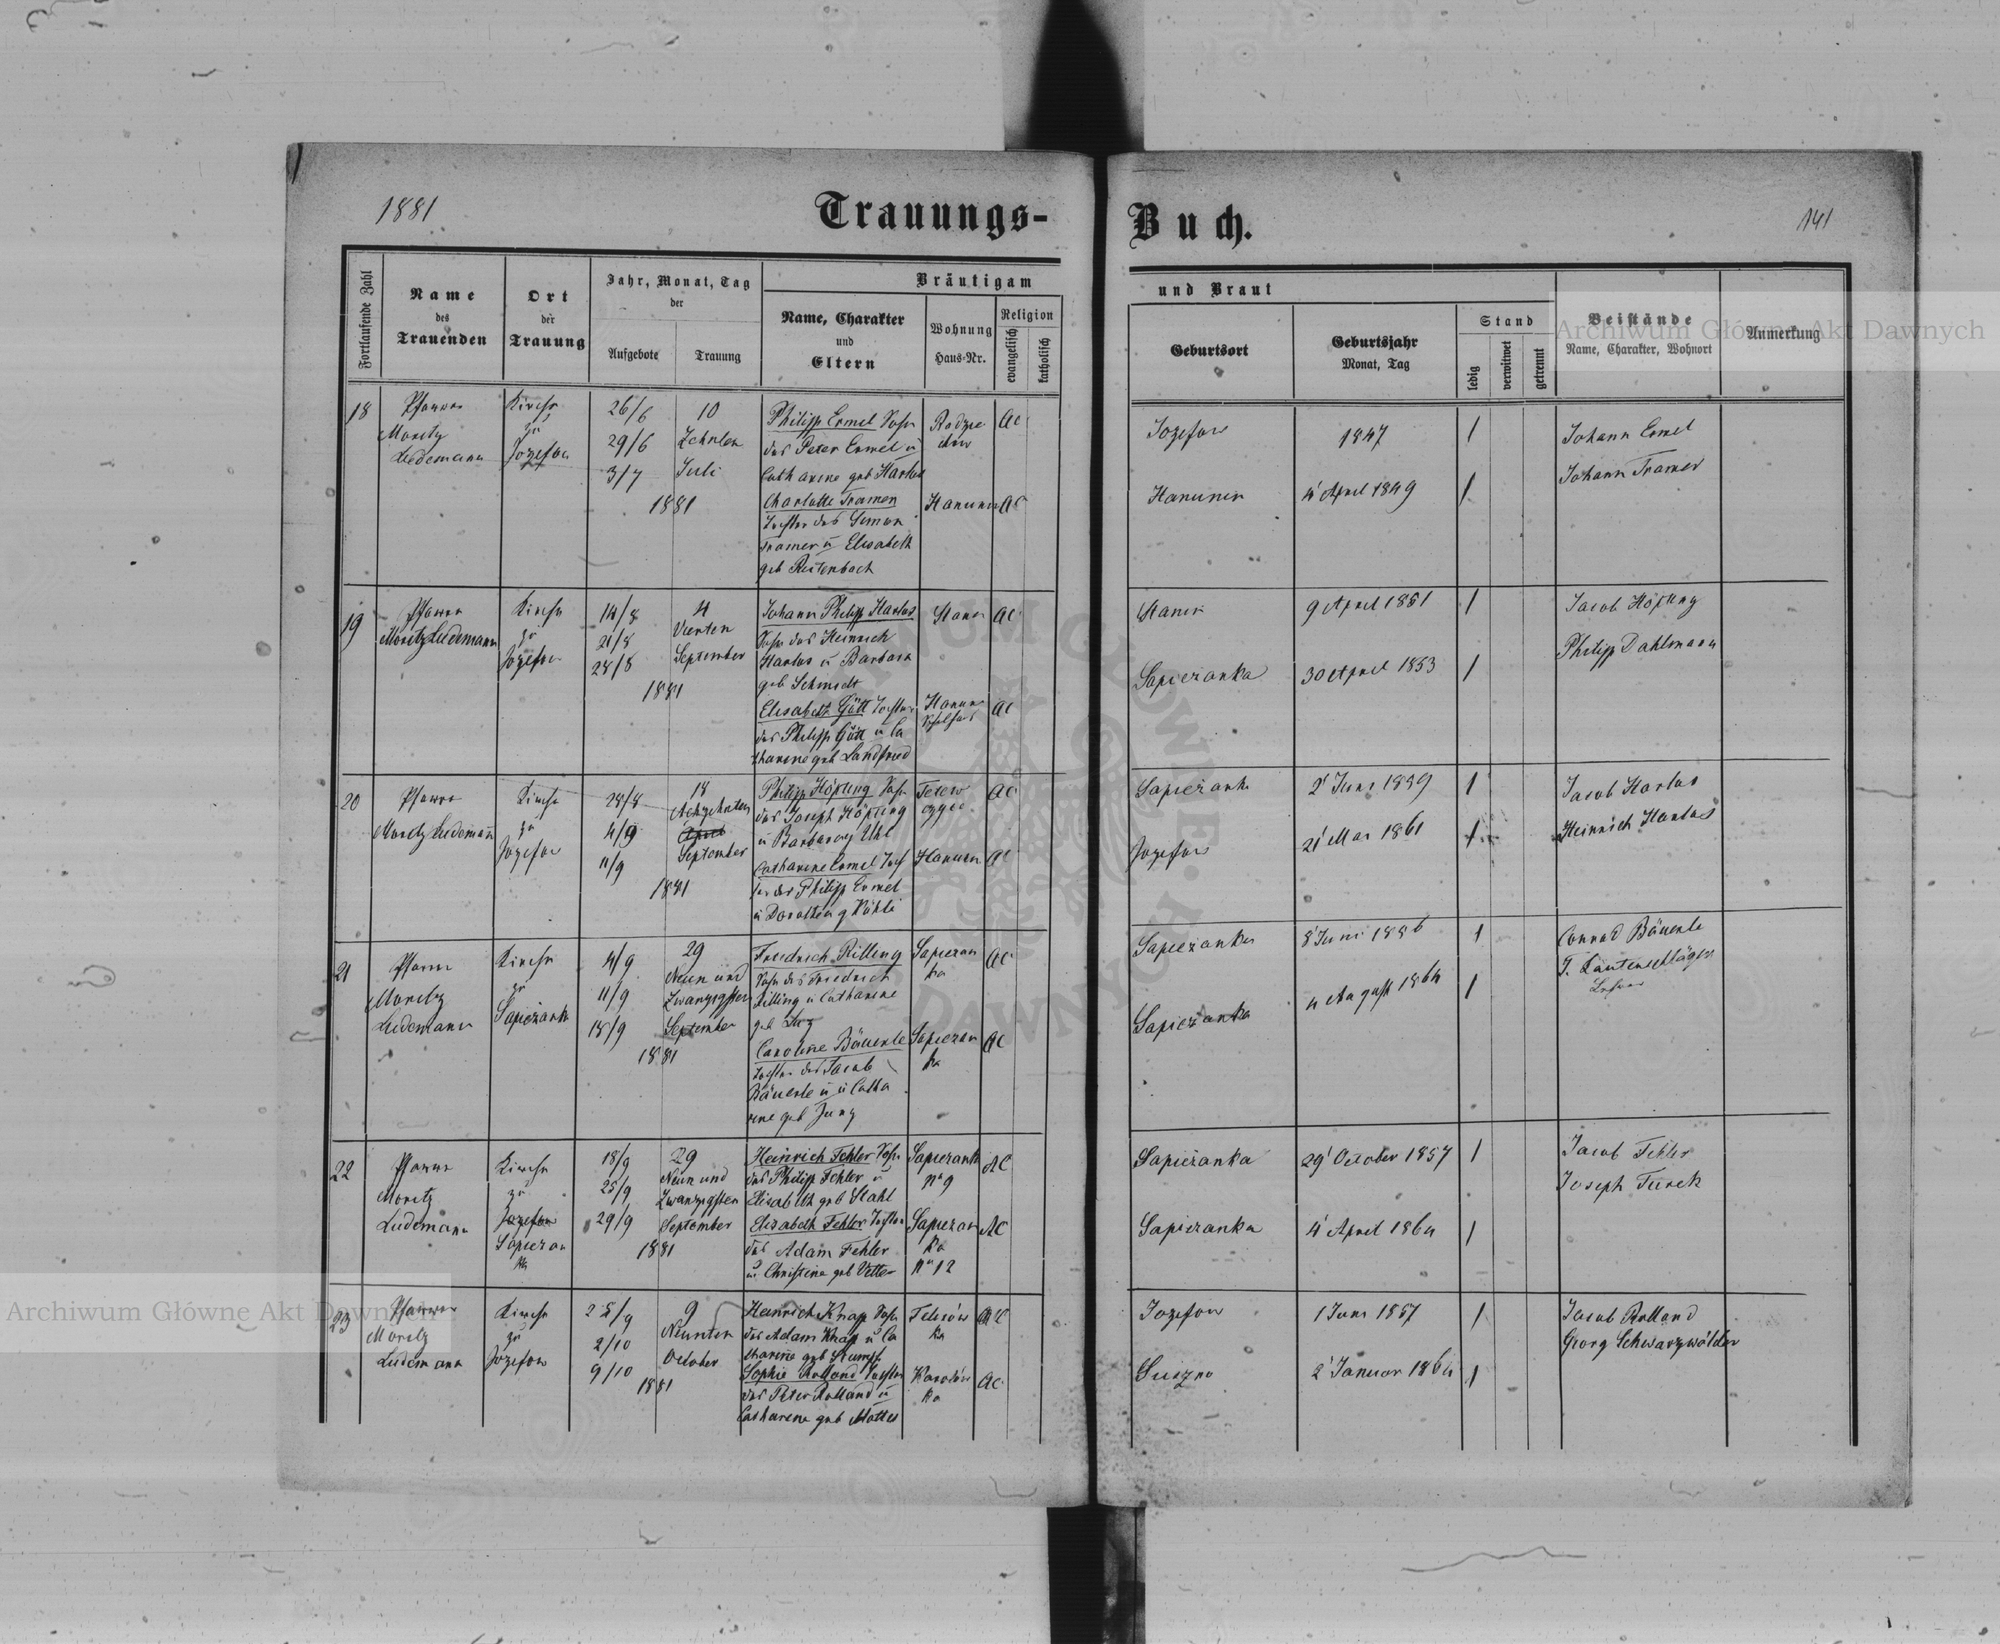 1881
Trauungs-
Buch.
141
Fortlaufende Zahl
Name
des
Trauenden
Ort
der
Trauung
Jahr, Monat, Tag
der
Aufgebote
Trauung
Bräutigam
Name, Charakter
und
Eltern
Wohnung
Haus-Nr.
Religion
evangelisch
katholisch
und Braut
Geburtsort
Geburtsjahr
Monat, Tag
Stand
ledig
verwitwet
getrennt
Beistände
Name, Charakter, Wohnort
Anmerkung
18
Pfarrer
Moritz
Ludemann
Kirche
zu
Josefow
26/6
29/6
3/7
10
Zehnten
Juli
1881
Philipp Ermel Sohn
des Peter Ermel u
Catharine geb Harlos
Charlotte Tramer
Tochter des Simon
Tramer u Elisabeth
geb Reitenbach
AC
Hanunin
AC
Jozefow
Hanunin
1847
4 April 1849
1
1
Johann Ermel
Johann Tramer
19
Pfarrer
Moritz Ludemann
Kirche
zu
Jozefow
14/8
21/8
28/8
4
Vierten
September
1881
Johann Philipp Harlos
Sohn des Heinrich
Harlos u Barbara
geb Schmidt
Elisabeth Gött Tochter
des Philipp Gött u Ca
tharine geb Landfried
Stanin
AC
AC
Stanin
Sapiezanka
9 April 1851
30 April 1853
1
1
Jacob Höpfling
Philipp Dahlmann
20
Pfarrer
Moritz Ludemann
Kirche
zu
Jozefow
28/8
4/9
11/9
18
Achzehnten
April
September
1881
Philipp Höpfling Sohn
des Joseph Höpfling
u Barbara g Uhl
Catharine Ermel Toch
ter des Philipp Ermel
u Dorothea g Köhli
AC
Hanunin
AC
Sapiezank
Jozefow
2 Juni 1859
21 Mai 1861
1
1
Jacob Harlos
Heinrich Harlos
21
Pfarrer
Moritz
Ludemann
Kirche
zu
Sapiezank
4/9
11/9
18/9
29
Neun und
Zwanzigsten
September
1881
Friedrich Rilling
Sohn des Friedrich
Rilling u Catharine
geb
Caroline Bäuerle
Tochter des Jacob
Bäuerle u u Catha
rine geb Jung
Sapiezan
ka
AC
Sapiezan
ka
AC
Sapiezanka
Sapiezanka
8 Juni 1856
4 August 1864
1
1
Conrad Bäuerle
F. Lautenschläger
Lehrer
22
Pfarrer
Moritz
Ludemann
Kirche
zu
Jozefow
Sapiezan
ka
18/9
25/9
29/9
29
Neun und
Zwanzigsten
September
1881
Heinrich Fehler Sohn
des Philipp Fehler u
Elisabeth geb Stahl
Elisabeth Fehler Tochter
des Adam Fehler
u Christine geb Vetter
Sapiezank
No 9
AC
Sapiezan
ka
No 12
AC
Sapiezanka
Sapiezanka
29 October 1857
4 April 1864
1
1
Jacob Fehler
Joseph Türck
23
Pfarrer
Moritz
Ludemann
Kirche
zu
Jozefow
25/9
2/10
9/10
9
Neunten
October
1881
Heinrich Knapp Sohn
des Adam Knapp u Ca
tharine geb Stumpf
Sophie Rolland Tochter
des Peter Rolland u
Catharine geb Mattes
AC
Karolów
ka
AC
Jozefow
Suszno
1 Juni 1857
2 Januar 1864
1
1
Jacob Rolland
Georg Schwarzwälder
Archiwum Główne Akt Dawnych
Archiwum Główne Akt Dawnych